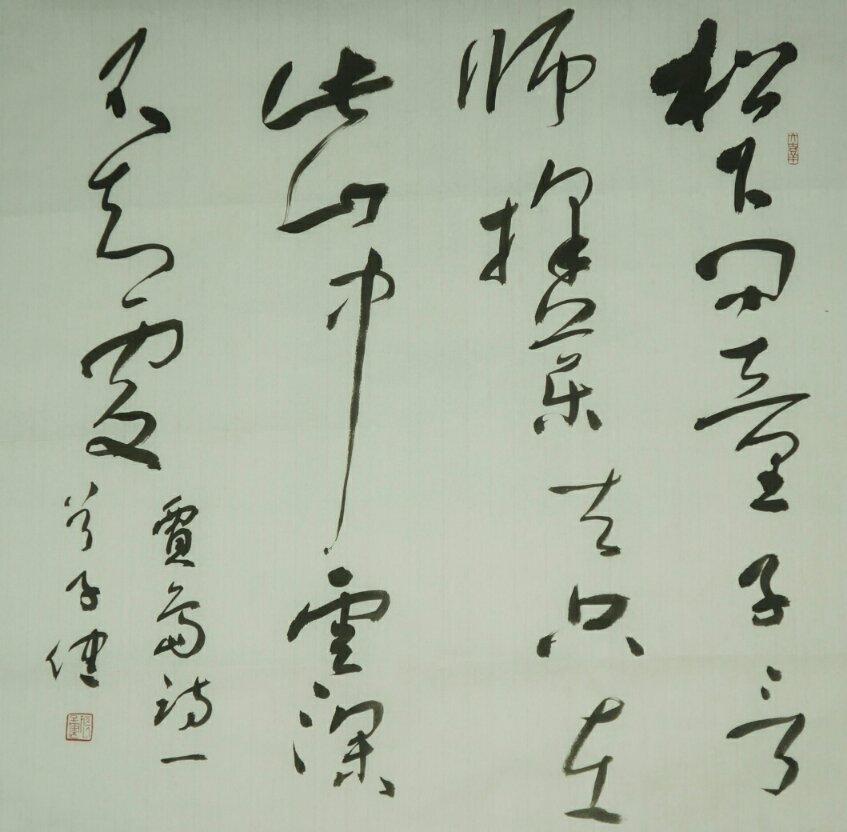 松下问童子言
师採药去只在
此山中雲深
不知處
賈島詩一
首子健